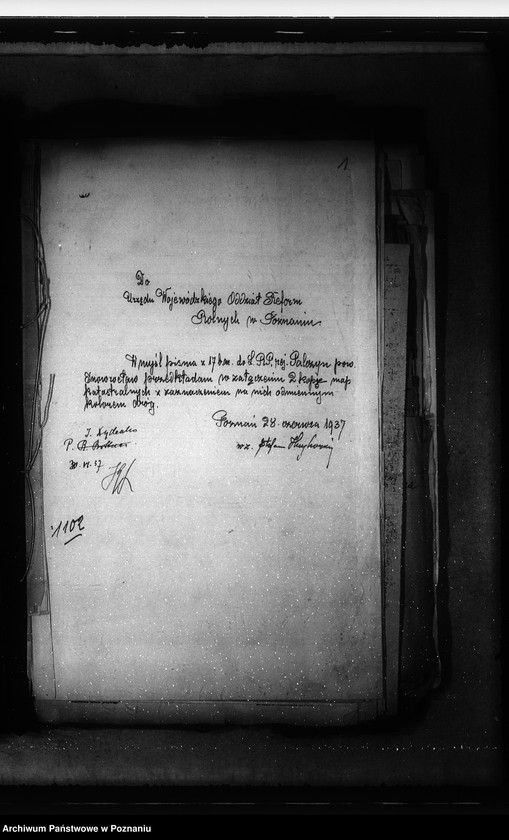 1
Do
Urzędu Wojewódzkiego Oddział Reform
Rolnych w Poznaniu.
W myśl pisma z 17 b.m. do L. RP. rej. pow.
Inowrocław przedkładam w załączeniu 2 kopje map
katastralnych z zaznaczeniem na nich odmiennym
kolorem dróg.
Poznań 28. czerwca 1937
wz. Stefan
P.
30. VI. 37
1102
Archiwum Państwowe w Poznaniu